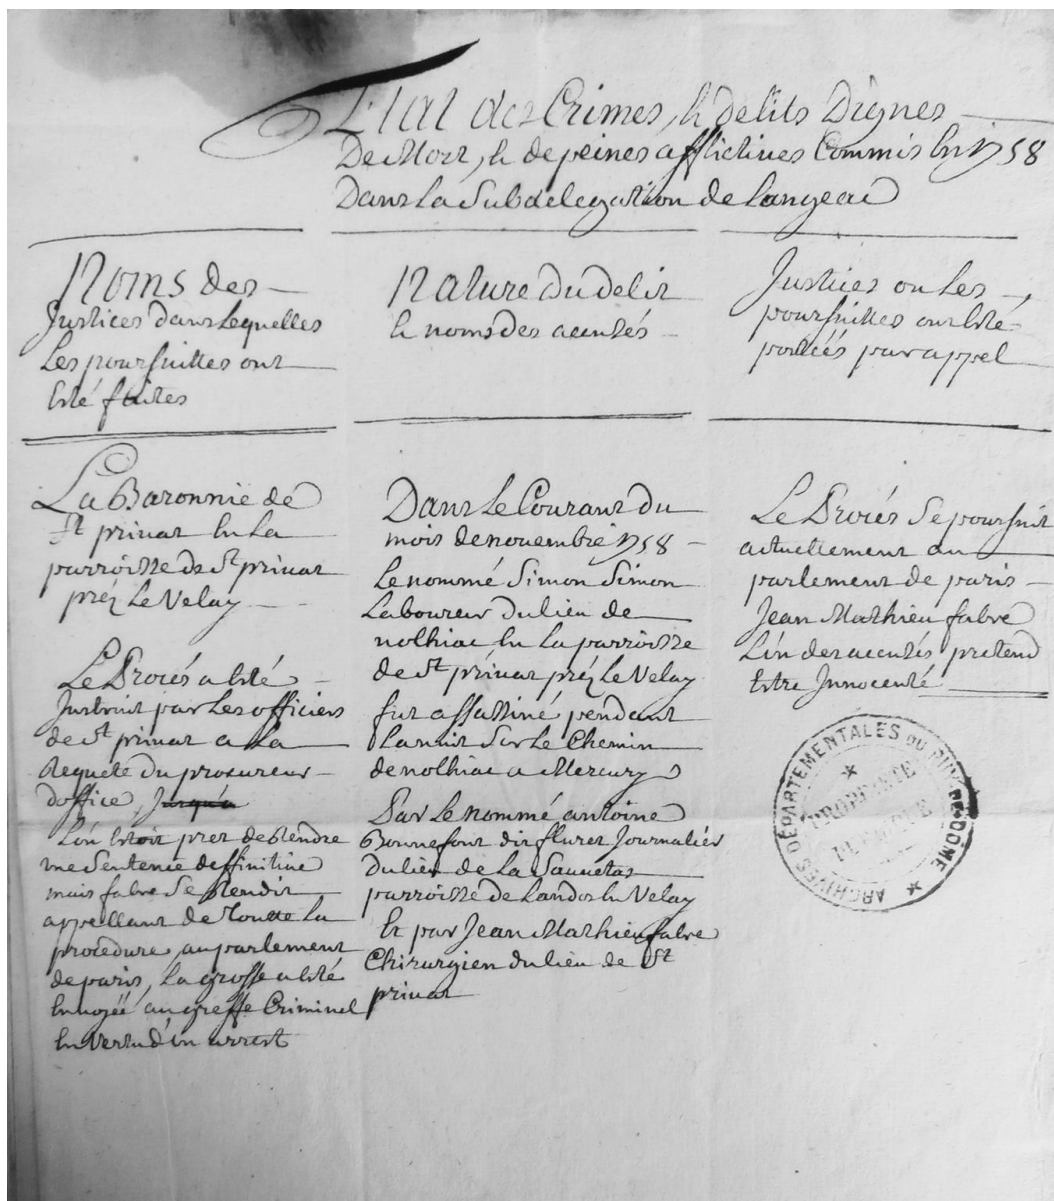 Etat des Crimes, & delits Dignes
De Mort, & de peines afflictives Commis En 1758
Dans La Subdelegation de Langeac
Noms des
Justices dans Lequelles
Les poursuittes ont
Eté faites
Nature Du delit
& noms des accusés
Justices ou Les
poursuittes ont Eté
portéés par appel
La Baronnie de
St privat En La
parroisse de St privat
préz Le Velay
Le Procés a Eté
Instruit par Les officiers
de St privat a La
Requete du procureur
d'office, Jusqu'a
L'on Etoit pret de Rendre
une Sentence deffinitive
mais fabre Se Rendit
appellant de Toutte La
procedure au parlement
de paris, La grosse a Eté
Envoyéé au greffe Criminel
En Vertu d'un arrest
Dans Le Courant du
mois de novembre 1758
Le nommé Simon Simon
Laboureur du lieu de
nolhiac En La parroisse
de St privat préz Le Velay
fut assassiné pendant
La nuit Sur Le Chemin
de nolhiac a Mercury
Par Le nommé antoine
Bonnefont dit fluret Journalier
du lieu de La Sauvetat
parroisse de Landos En Velay
Et par Jean Mathieu fabre
Chirurgien du lieu de St
privat
Le Procés Se poursuit
actuellement au
parlement de paris
Jean Mathieu fabre
L'un des accusés pretend
Estre Innocenté
ARCHIVES DÉPARTEMENTALES DU PUY-DE-DOME
PROPRIÉTÉ
PUBLIQUE